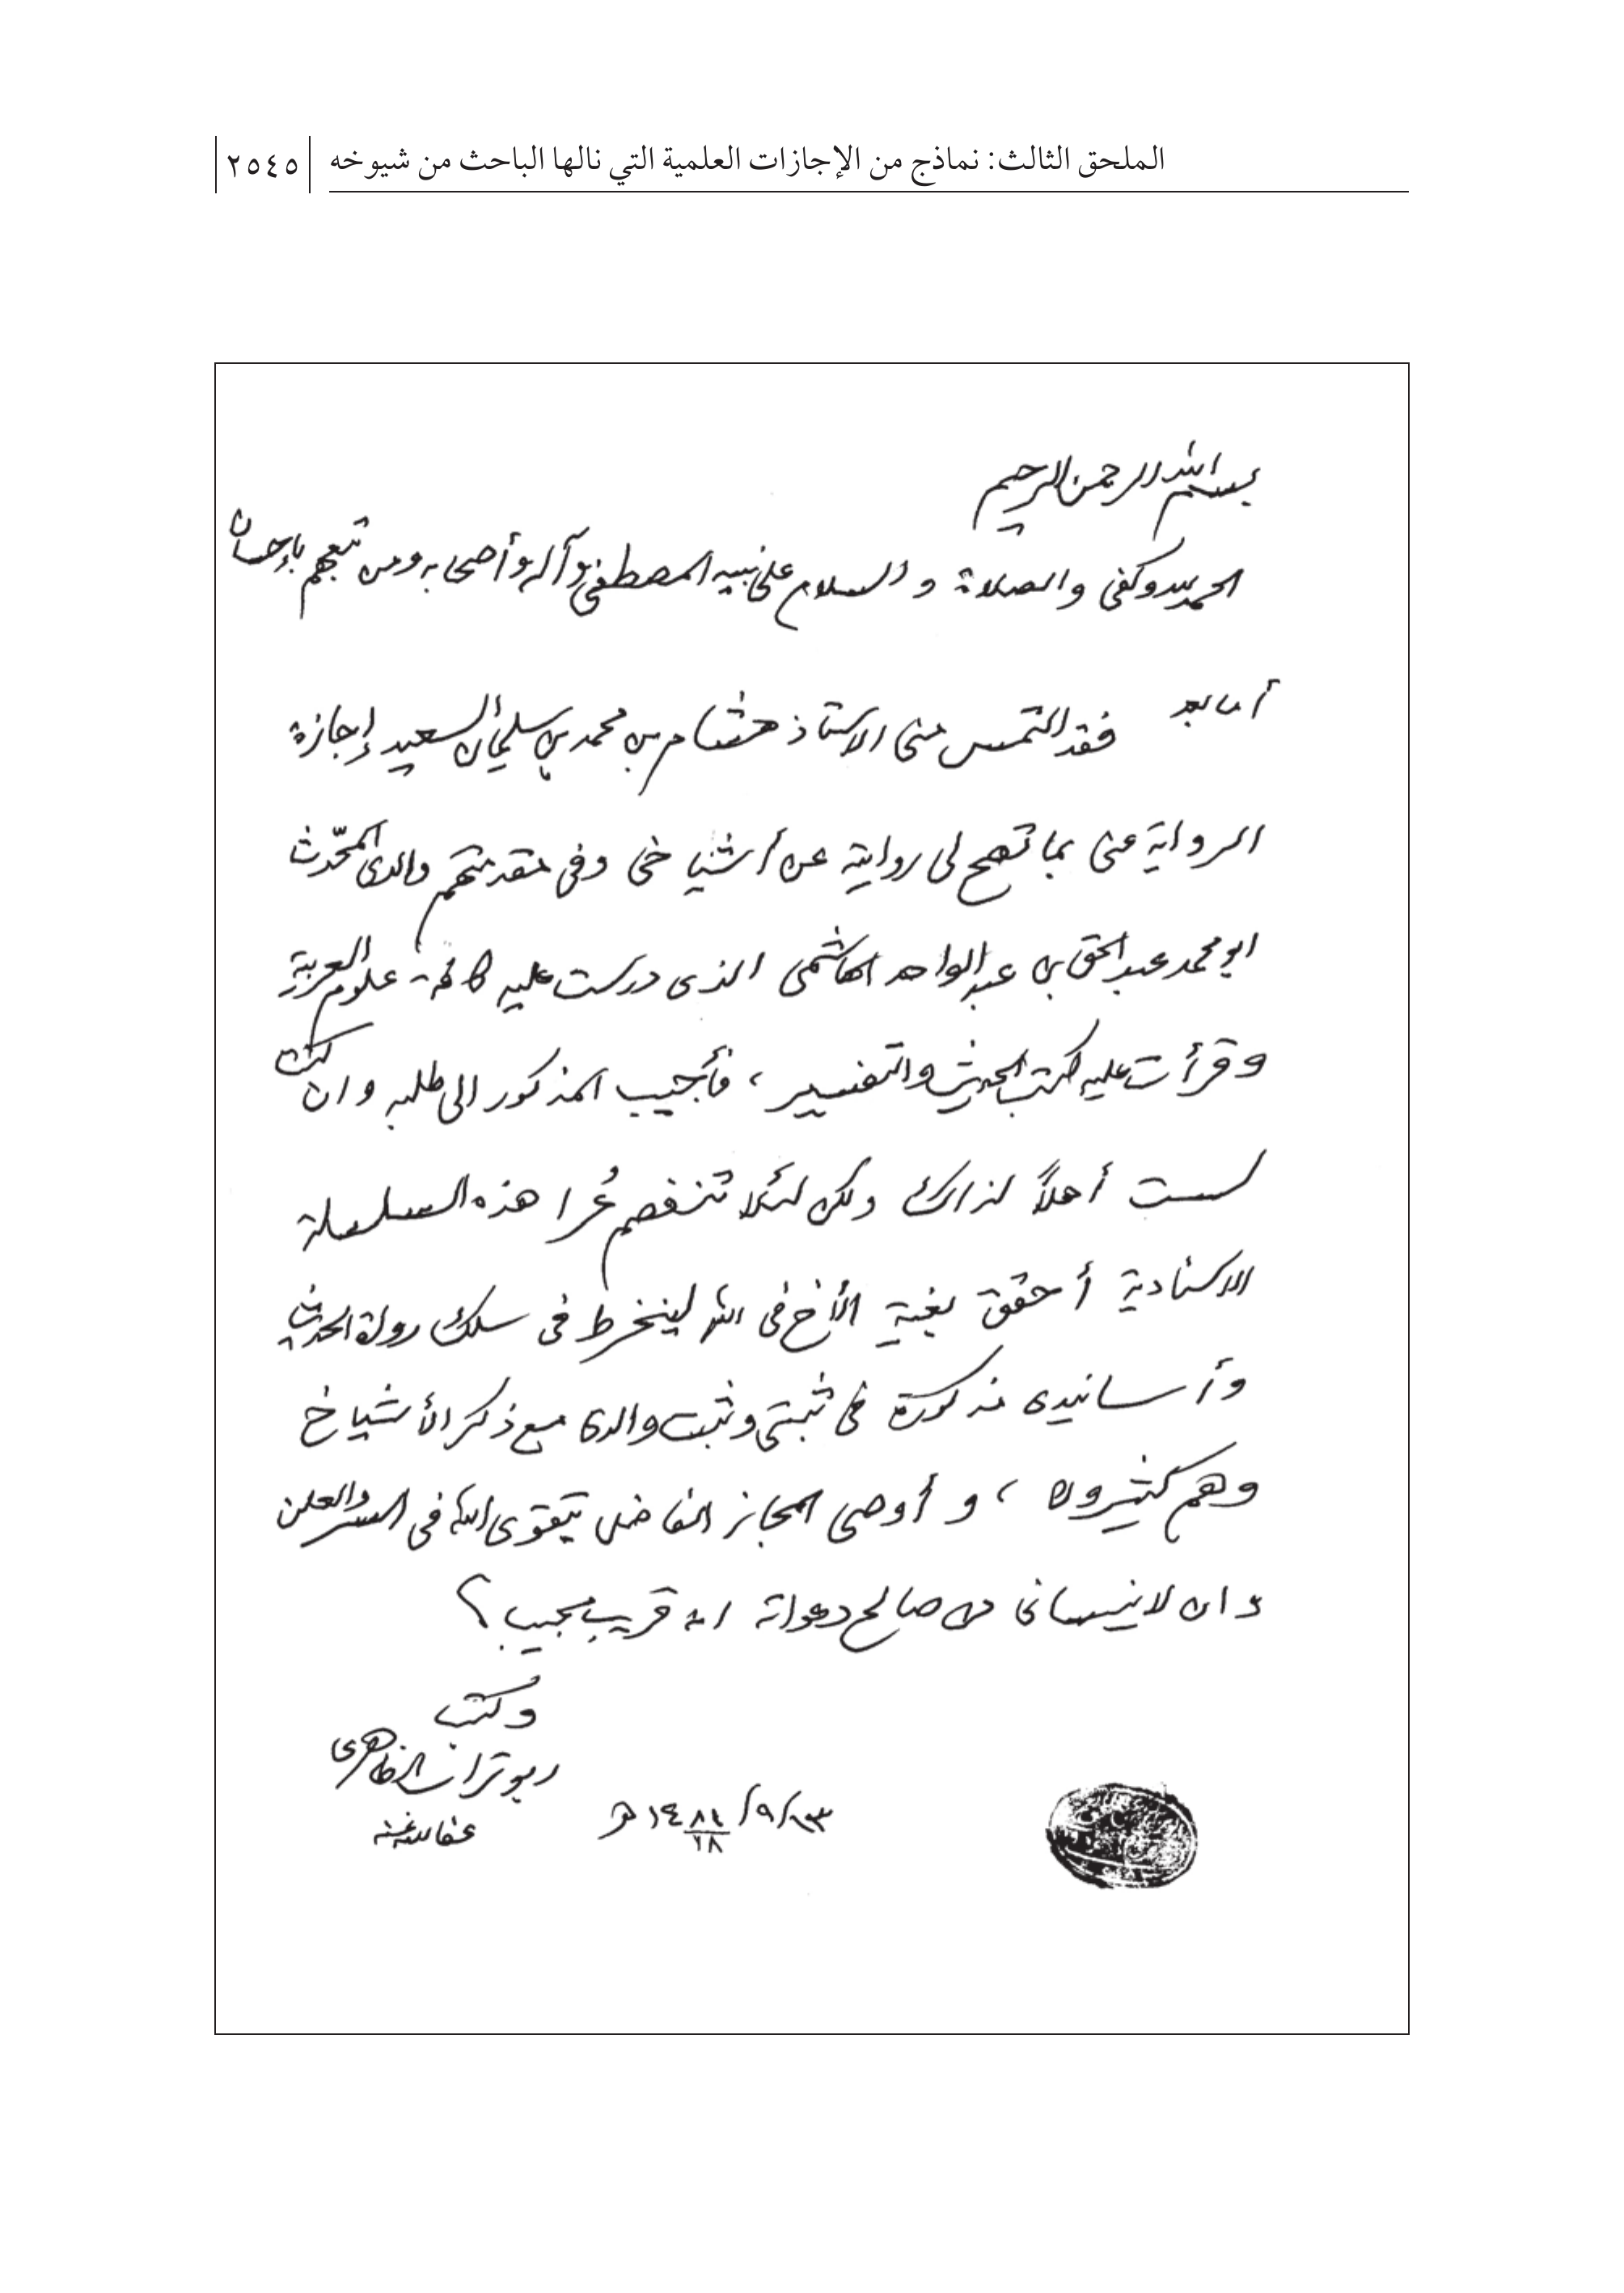 الملحق الثالث: نماذج من الإجازات العلمية التي نالها الباحث من شيوخه
٢٥٤٥
بسم الله الرحمن الرحيم
الحمد لله وكفى والصلاة والسلام على نبيه المصطفى وآله وأصحابه ومن تبعهم بإحسان
أما بعد فقد التمس منى الاستاذ هشام بن محمد بن سليمان السعيد إجازة
الرواية عنى بما تصح لى روايته عن أشياخى وفى مقدمتهم والدى المحدّث
ابو محمد عبد الحق بن عبد الواحد الهاشمى الذى درست عليه كافة علوم العربية
وقرأت عليه كتب الحديث والتفسير، فأجيب المذكور الى طلبه وان كنت
لست أهلاً لذالك ولكن لئلا تنفصم عُرا هذه السلسلة
الاسنادية أحقق بغية الأخ فى الله لينخرط فى سلك رواة الحديث
وأسانيدى مذكورة فى ثبتى وثبت والدى مع ذكر الأشياخ
وهم كثيرون، وأوصى المجاز الفاضل بتقوى الله فى السر والعلن
وان لا ينسانى من صالح دعواته انه قريب مجيب؟
وكتب
ابو تراب الظاهرى
عفا الله عنه